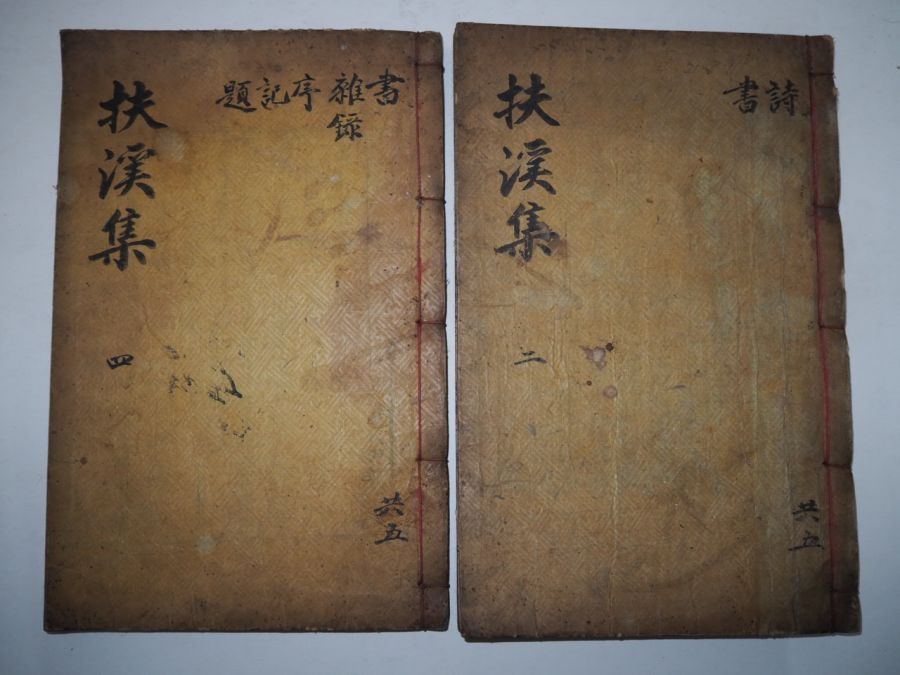 扶溪集
四
書
雜錄
序
記
題
共五
扶溪集
二
詩
書
共五